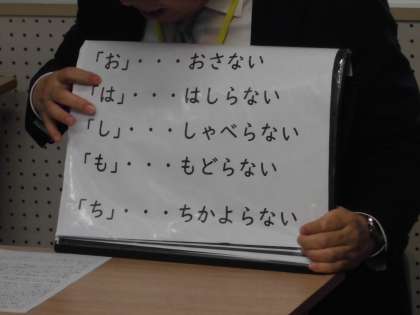 「お」・・・おさない
「は」・・・はしらない
「し」・・・しゃべらない
「も」・・・もどらない
「ち」・・・ちかよらない